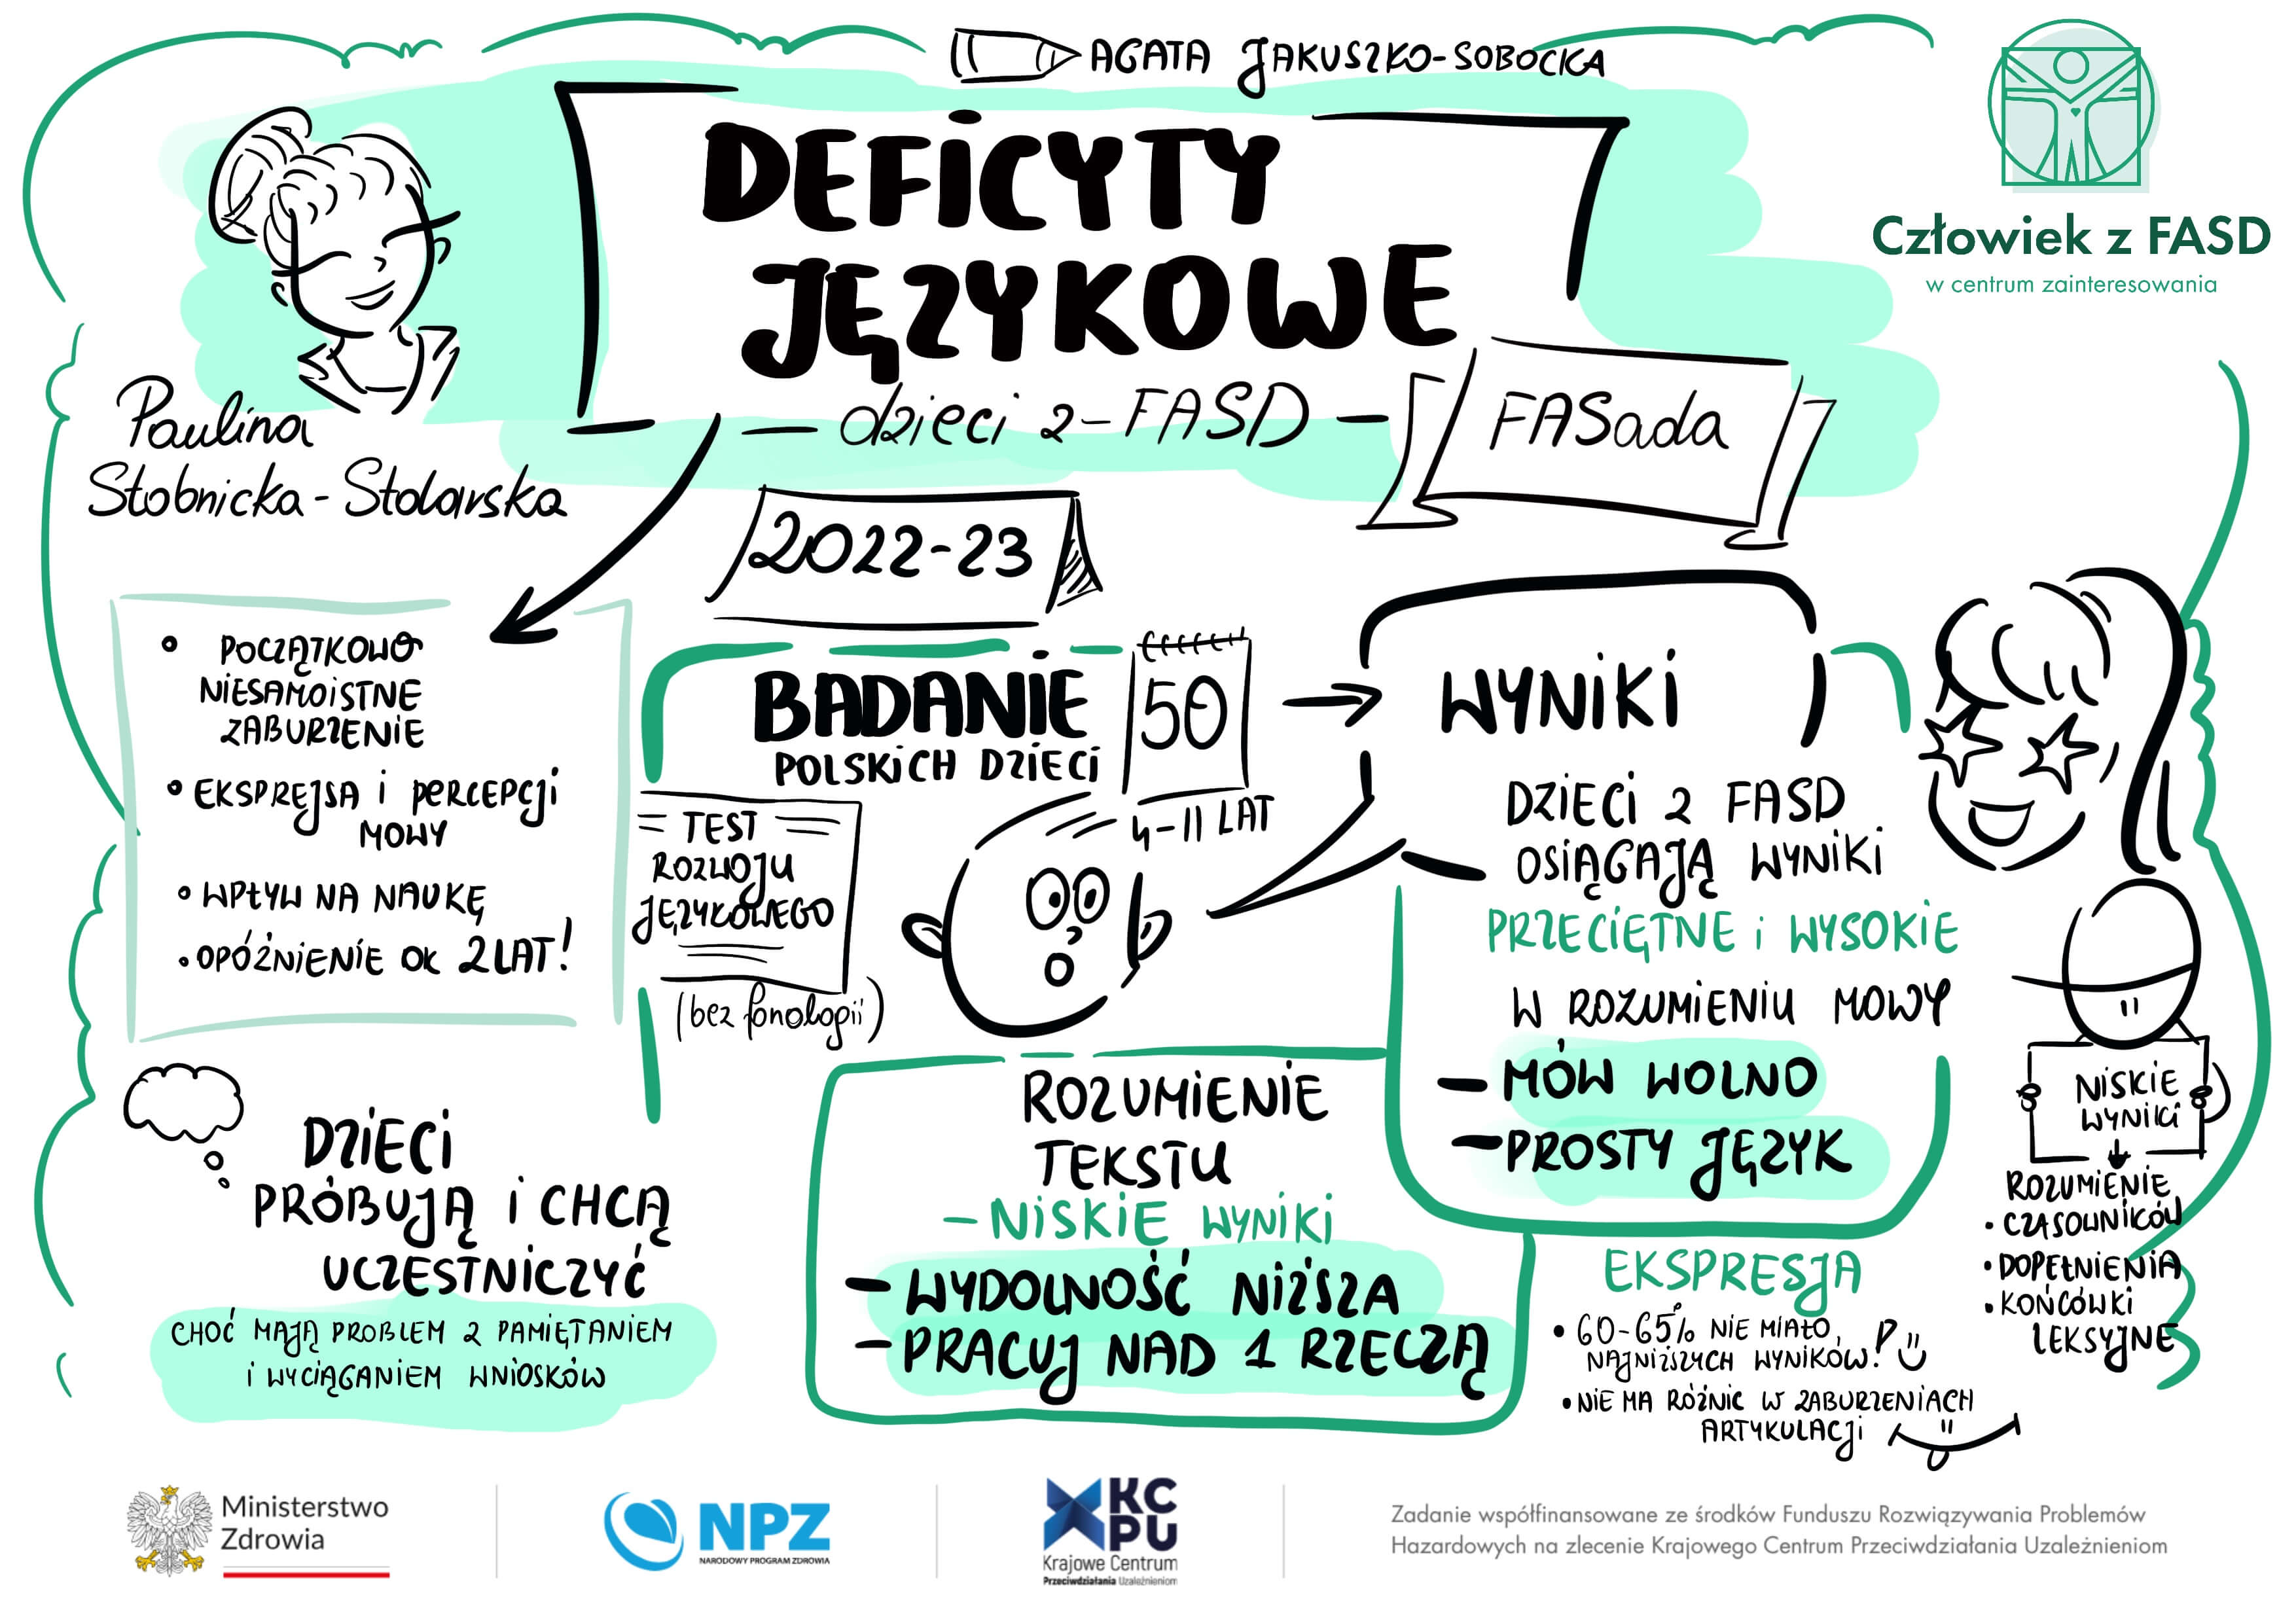 AGATA JAKUSZKO-SOBOCKA
DEFICYTY
JĘZYKOWE
dzieci z FASD
FASada
Człowiek z FASD
w centrum zainteresowania
Paulina
Stobnicka-Stolarska
2022-23
• POCZĄTKOWO
NIESAMOISTNE
ZABURZENIE
• EKSPREJSA i PERCEPCJI
MOWY
• WPŁYW NA NAUKĘ
• OPÓŹNIENIE OK 2 LAT!
BADANIE
POLSKICH DZIECI
50
4-11 LAT
TEST
ROZWOJU
JĘZYKOWEGO
(bez fonologii)
WYNIKI
DZIECI Z FASD
OSIĄGAJĄ WYNIKI
PRZECIĘTNE i WYSOKIE
W ROZUMIENIU MOWY
- MÓW WOLNO
- PROSTY JĘZYK
NISKIE
WYNIKI
ROZUMIENIE
• CZASOWNIKÓW
• DOPEŁNIENIA
• KOŃCÓWKI
LEKSYJNE
DZIECI
PRÓBUJĄ i CHCĄ
UCZESTNICZYĆ
CHOĆ MAJĄ PROBLEM Z PAMIĘTANIEM
i WYCIĄGANIEM WNIOSKÓW
ROZUMIENIE
TEKSTU
- NISKIE WYNIKI
- WYDOLNOŚĆ NIŻSZA
- PRACUJ NAD 1 RZECZĄ
EKSPRESJA
• 60-65% NIE MIAŁO
NAJNIŻSZYCH WYNIKÓW!
• NIE MA RÓŻNIC W ZABURZENIACH
ARTYKULACJI
Ministerstwo
Zdrowia
NPZ
NARODOWY PROGRAM ZDROWIA
KC
PU
Krajowe Centrum
Przeciwdziałania Uzależnieniom
Zadanie współfinansowane ze środków Funduszu Rozwiązywania Problemów
Hazardowych na zlecenie Krajowego Centrum Przeciwdziałania Uzależnieniom